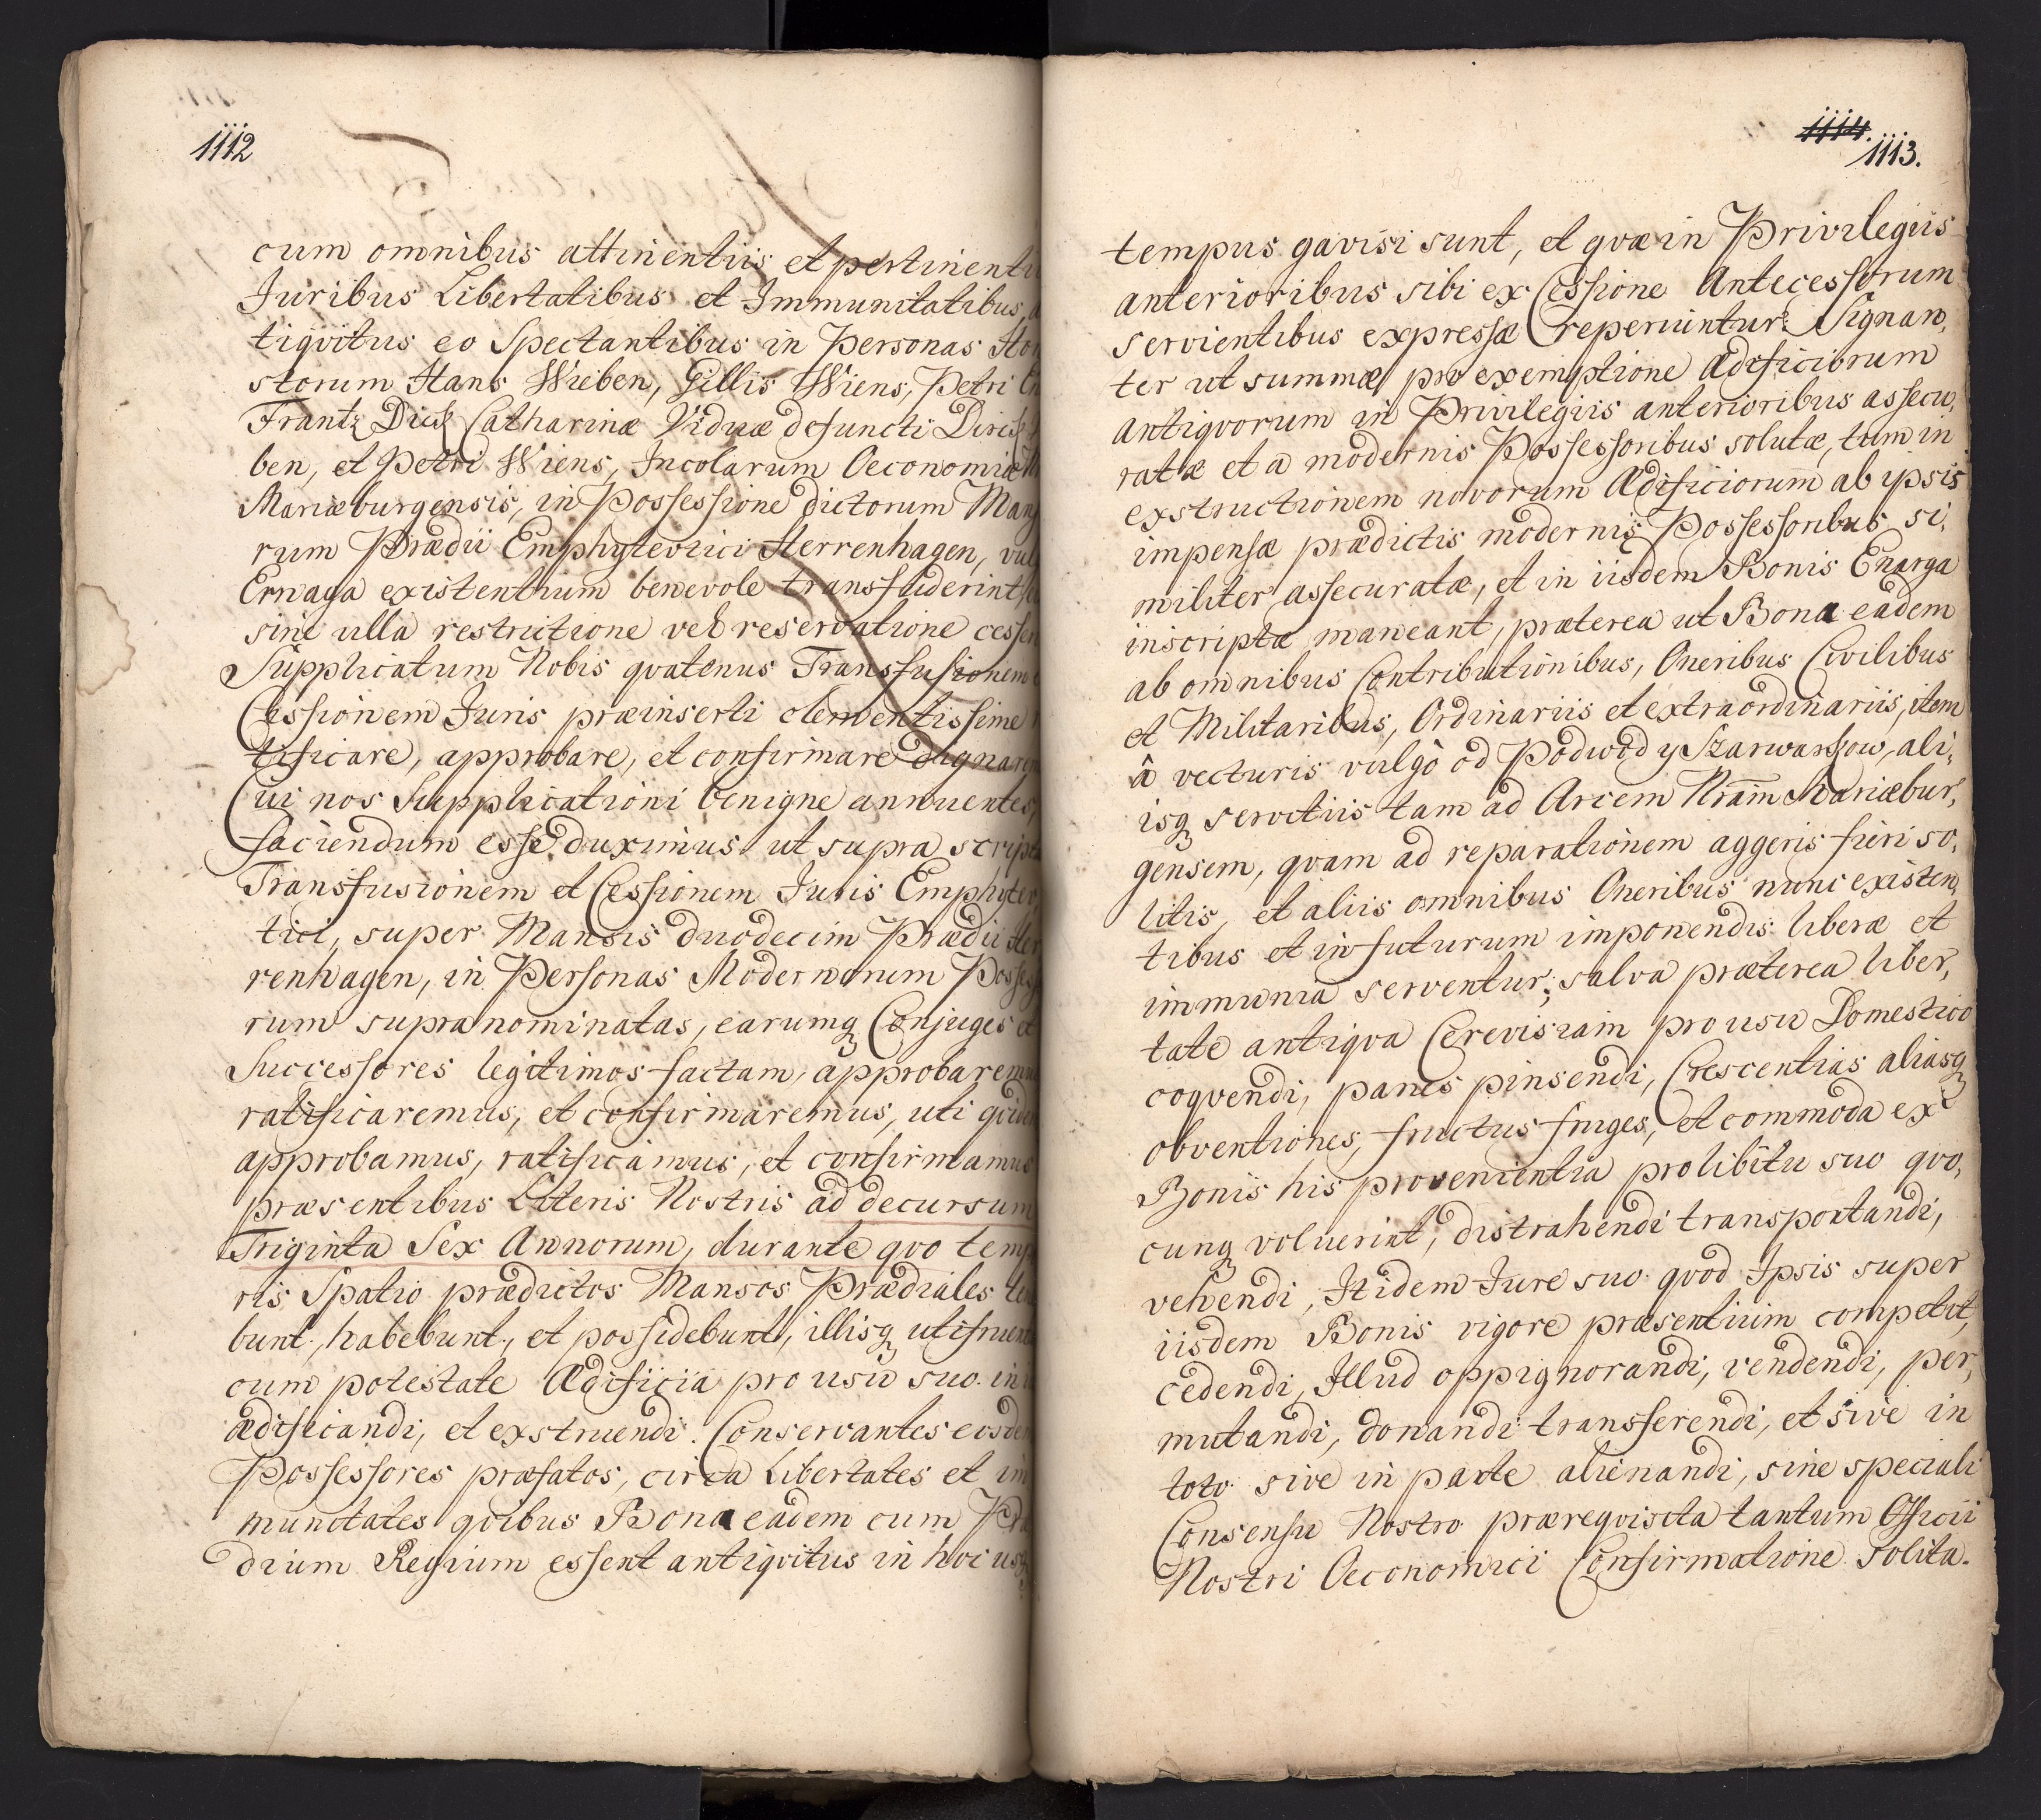 1112
cum omnibus attinentiis et pertinenti
Juribus Libertatibus et Immunitatibus, a
tiqvitus eo Spectantibus in Personas Hon
storum Hans Wieben, Gillis Wiens, Petri En
Frantz Dick Catharinæ Viduæ defuncti Dirick
ben, et Petri Wiens, Incolarum Oeconomiæ
Mariæburgensis, in Possessione dictorum Mans
rum Prædii Emphytevtici Herrenhagen, vul
Ernaga existentium benevole transfuderint, e
sine ulla restrictione vel reservatione cesser
Supplicatum Nobis qvatenus Transfusionem e
Cessionem Juris præinserti clementissime r
tificare, approbare, et confirmare dignarem
Cui nos Supplicationi benigne annuentes,
faciendum esse duximus ut supra script
Transfusionem et Cessionem Juris Emphytev
tici, super Mansis duodecim Prædii Her
renhagen, in Personas Modernorum Possess
rum supranominatas, earumq Conjuges et
Successores legitimos factam, approbaremus
ratificaremus, et confirmaremus, uti qvidem
approbamus, ratificamus, et confirmamus
præsentibus Literis Nostris ad decursum
Triginta Sex Annorum, durante qvo temp
ris Spatio prædictos Mansos Prædiales ten
bunt, habebunt, et possidebunt, illisq utifruent
cum potestate Ædificia pro usu suo in i
ædificandi, et exstruendi. Conservantes eosdem
Possessores præfatos, circa Libertates et im
munitates qvibus Bona eadem cum Præ
dium Regium essent antiqvitus in hoc usq
1114.
1113.
tempus gavisi sunt, et qvæ in Privilegiis
anterioribus sibi ex Cessione Antecessorum
servientibus expressæ reperiuntur: Signan,
ter ut summæ pro exemptione Ædificiorum
antiqvorum in Privilegiis anterioribus assecu,
ratæ et a modernis Possessoribus solutæ, tum in
exstructionem novorum Ædificiorum ab ipsis
impensæ prædictis modernis Possessoribus si,
militer assecuratæ, et in iisdem Bonis Enarga
inscriptæ maneant, præterea ut Bona eadem
ab omnibus Contributionibus, Oneribus Civilibus
et Militaribus, Ordinariis et extraordinariis, item
â vecturis vulgò od Podwod y Szarwarkow, ali,
isq servitiis tam ad Arcem Nram Mariæbur,
gensem, qvam ad reparationem aggeris fieri so,
litis, et aliis omnibus Oneribus nunc existen,
tibus et in futurum imponendis liberæ et
immunia serventur; salva præterea liber,
tate antiqva Cerevisiam pro usu Domestico
coqvendi, panes pinsendi, Crescentias aliasq
obventiones, fructus fruges, et commoda ex
Bonis his provenientia pro libitu suo qvo,
cunq voluerint, distrahendi transportandi,
vehendi, Itidem Jure suo qvod Ipsis super
iisdem Bonis vigore præsentium competit,
cedendi, Illud oppignorandi, vendendi, per,
mutandi, donandi transferendi, et sive in
toto sive in parte alienandi, sine speciali
Consensu Nostro prærequisita tantum Officii
Nostri Oeconomici Confirmatione solita.